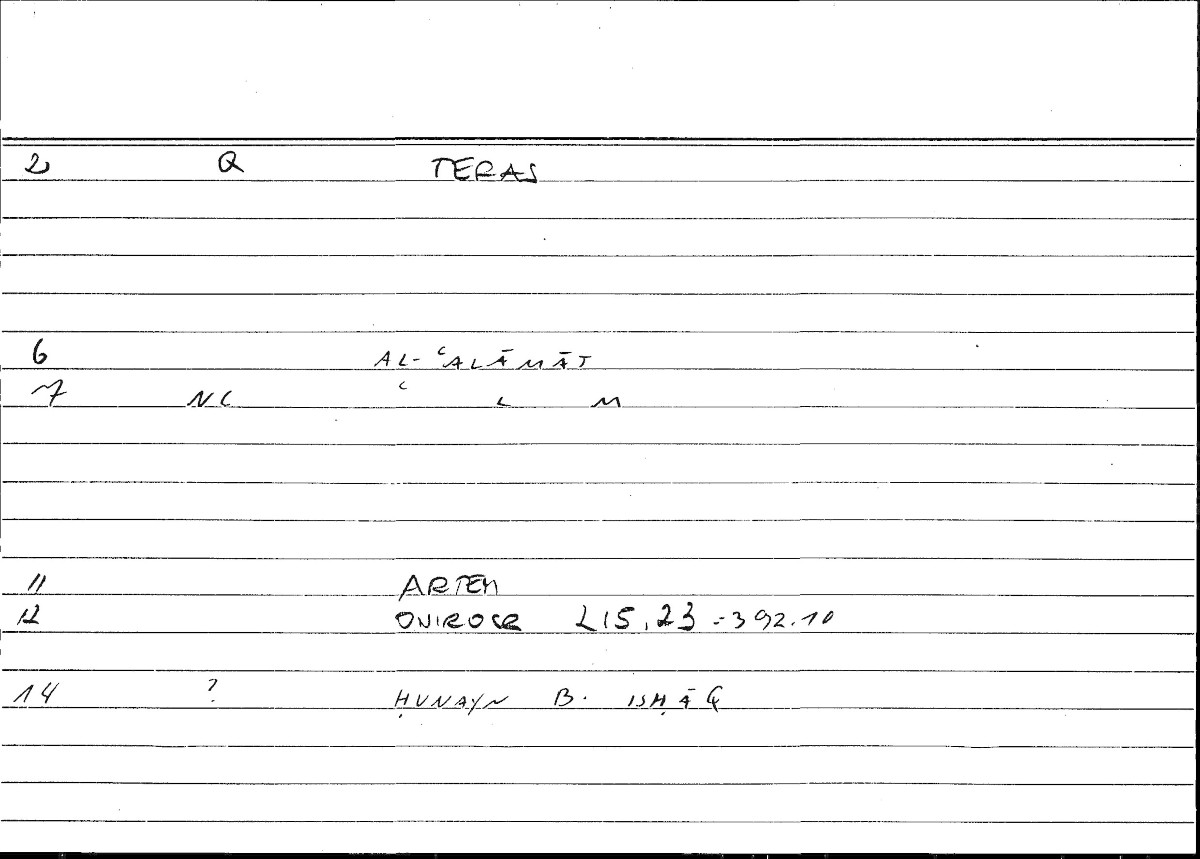 2 Q TERAS
6 AL-ʿALĀMĀT
7 NC ʿ L M
11 ARTEM
12 ONIROCR 215,23 = 392.10
14 ? ḤUNAYN B. ISḤĀQ